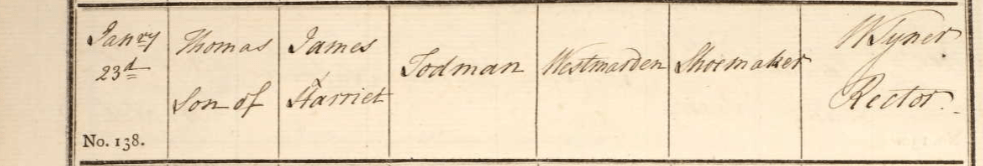 Janry
23d
No. 138.
Thomas
Son of
James
&
Harriet
Todman
Westmarden
Shoemaker
W Tyner
Rector.